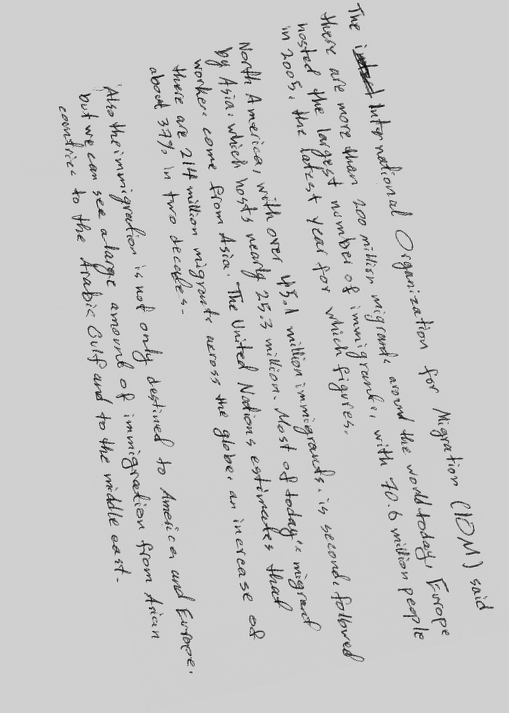 The International Organization for Migration (IOM) said
there are more than 200 million migrants around the world today. Europe
hosted the largest number of immigrants, with 70.6 million people
in 2005, the latest year for which figures.
North America, with over 45.1 million immigrants, is second, followed
by Asia, which hosts nearly 25.3 million. Most of today's migrant
workers come from Asia. The United Nations estimates that
there are 214 million migrants across the globe, an increase of
about 37% in two decades.
Also the immigration is not only destined to America and Europe,
but we can see a large amount of immigration from Asian
countries to the Arabic Gulf and to the middle east.